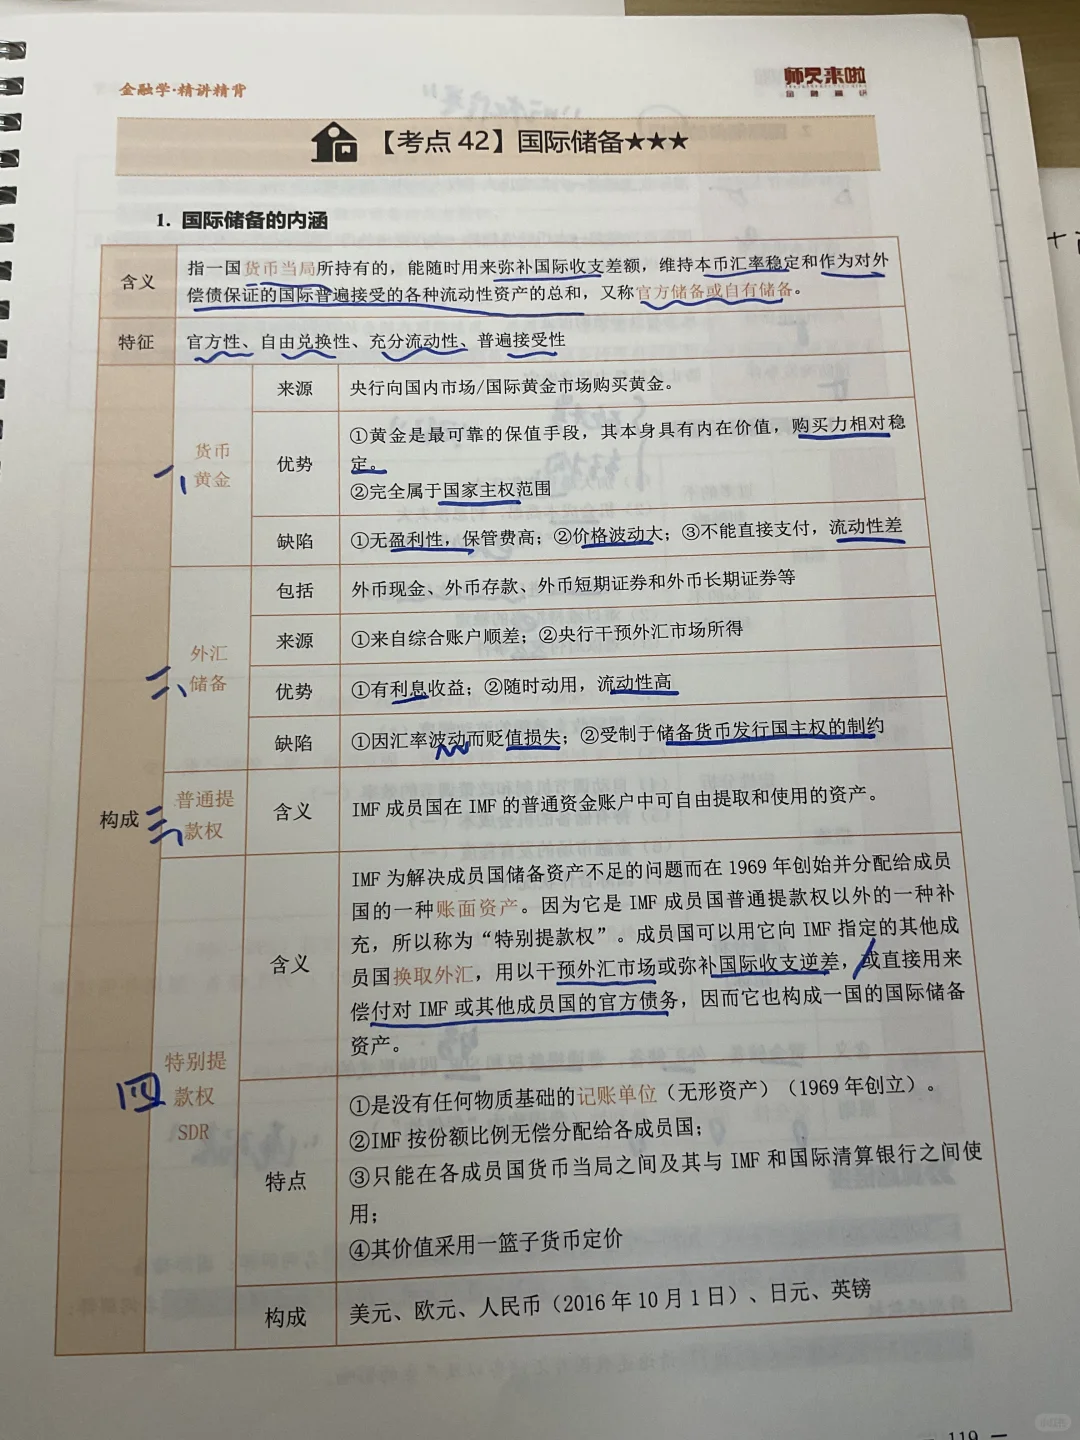 金融学·精讲精背
师兄来啦
【考点 42】国际储备★★★
1. 国际储备的内涵
含义
指一国货币当局所持有的，能随时用来弥补国际收支差额，维持本币汇率稳定和作为对外
偿债保证的国际普遍接受的各种流动性资产的总和，又称官方储备或自有储备。
特征
官方性、自由兑换性、充分流动性、普遍接受性
构成
一、
货币
黄金
来源
央行向国内市场/国际黄金市场购买黄金。
优势
①黄金是最可靠的保值手段，其本身具有内在价值，购买力相对稳
定。
②完全属于国家主权范围
缺陷
①无盈利性，保管费高；②价格波动大；③不能直接支付，流动性差
二、
外汇
储备
包括
外币现金、外币存款、外币短期证券和外币长期证券等
来源
①来自综合账户顺差；②央行干预外汇市场所得
优势
①有利息收益；②随时动用，流动性高
缺陷
①因汇率波动而贬值损失；②受制于储备货币发行国主权的制约
三、
普通提
款权
含义
IMF 成员国在 IMF 的普通资金账户中可自由提取和使用的资产。
四
特别提
款权
SDR
含义
IMF 为解决成员国储备资产不足的问题而在 1969 年创始并分配给成员
国的一种账面资产。因为它是 IMF 成员国普通提款权以外的一种补
充，所以称为“特别提款权”。成员国可以用它向 IMF 指定的其他成
员国换取外汇，用以干预外汇市场或弥补国际收支逆差，或直接用来
偿付对 IMF 或其他成员国的官方债务，因而它也构成一国的国际储备
资产。
特点
①是没有任何物质基础的记账单位（无形资产）（1969 年创立）。
②IMF 按份额比例无偿分配给各成员国；
③只能在各成员国货币当局之间及其与 IMF 和国际清算银行之间使
用；
④其价值采用一篮子货币定价
构成
美元、欧元、人民币（2016 年 10 月 1 日）、日元、英镑
— 119 —